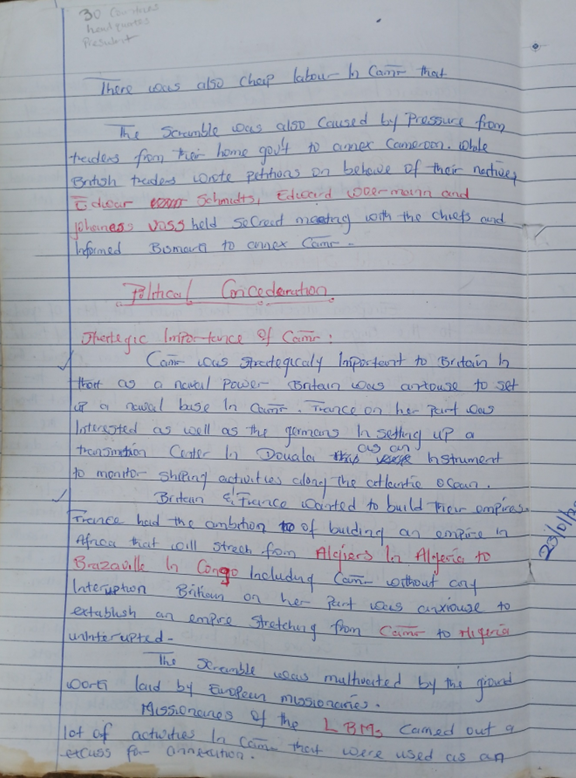 30 Countries
headquaters
President
There was also cheap labour In Camr that
The Scramble was also caused by Pressure from
traders from their home gov't to annex Cameroon. While
British traders wrote petitions on behave of their natives
Edwar Schmidts, Edward woermann and
johaness Voss held secread meeting with the chiefs and
Informed Bismark to annex Camr.
Political Concederation
Strategic Importance Of Camr:
Camr was strategicaly Important to Britain In
that as a naval power Britain was anxiouse to set
up a naval base In Camr. France on her Part was
Interested as well as the germans In setting up a
transmition Center In Douala as an Instrument
to monitor shiping activities along the atlantic ocean.
Britain & France wanted to build their empires.
France had the ambition of building an empire in
Africa that will strech from Algiers In Algeria to
Brazaville In Congo Including Camr without any
Interuption Britain on her Part was anxiouse to
establish an empire stretching from Camr to Nigeria
uninterrupted.
The Scramble was multivated by the ground
work laid by European missionaries.
Missionaries of the L BMs Carried out a
lot of activities In Camr that were used as an
excuss for annexation.